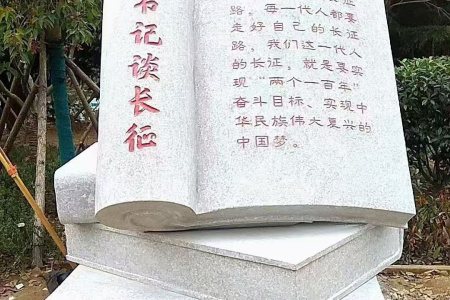 书记谈长征
路，每一代人都要
走好自己的长征
路，我们这一代人
的长征，就是要实
现“两个一百年”
奋斗目标、实现中
华民族伟大复兴的
中国梦。